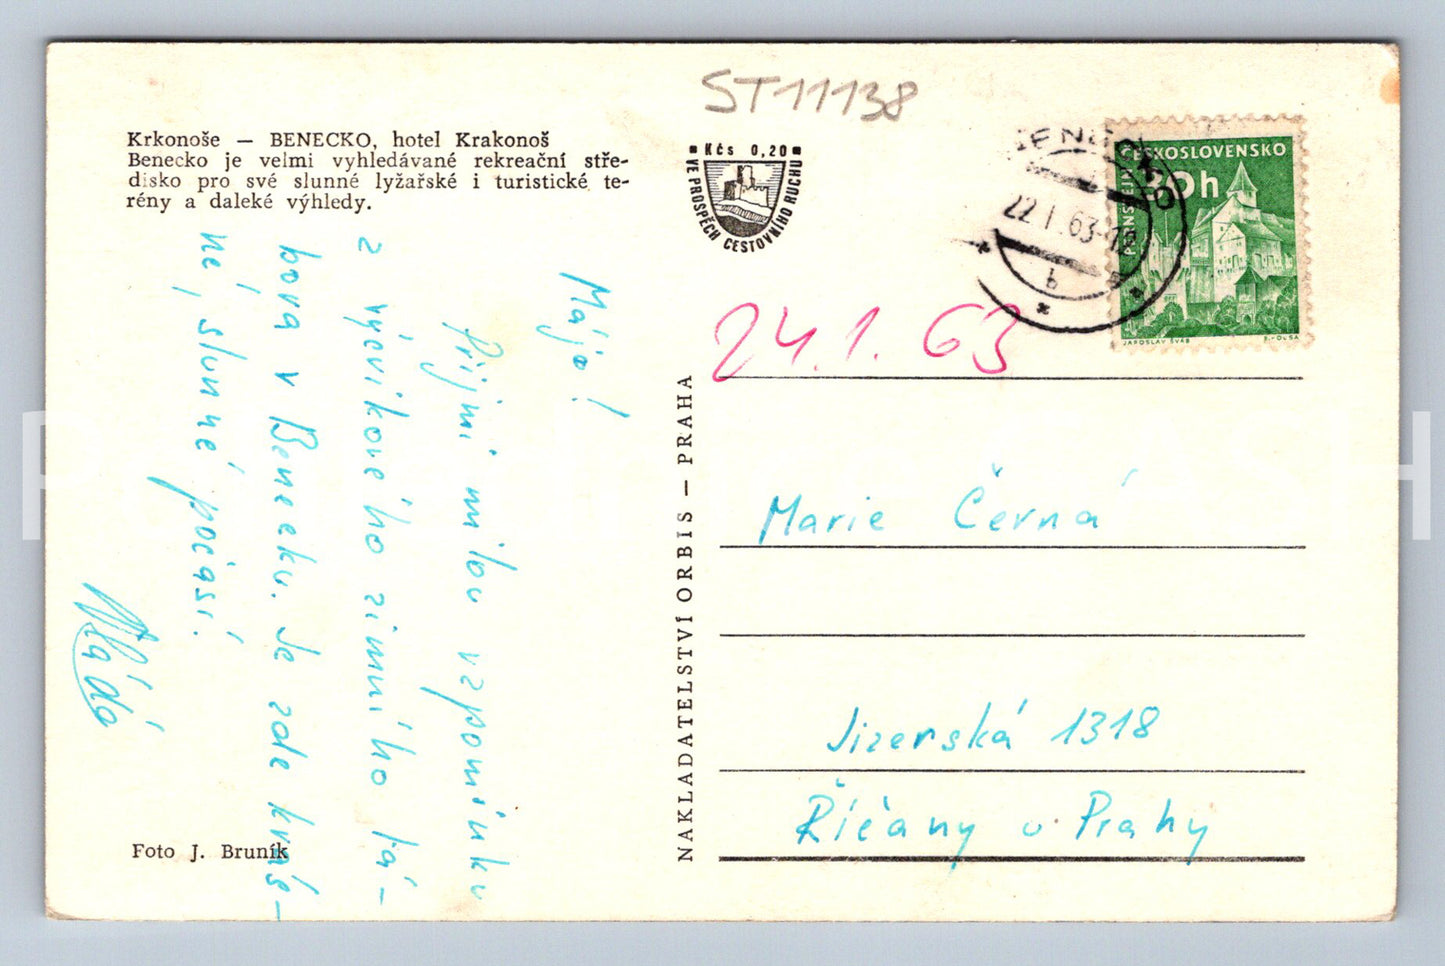 ST11138
Krkonoše — BENECKO, hotel Krakonoš
Benecko je velmi vyhledávané rekreační stře-
disko pro své slunné lyžařské i turistické te-
rény a daleké výhledy.
Kčs 0,20
VE PROSPĚCH CESTOVNÍHO RUCHU
22.I.63-18
b
ČESKOSLOVENSKO
30h
PERNŠTEJN
JAROSLAV ŠVÁB
24.1.63
Májo!
Přijmi milou vzpomínku
z výcvikového zimního tá-
bora v Benecku. Je zde krás-
né, slunné počasí.
Vláďa
NAKLADATELSTVÍ ORBIS — PRAHA
Marie Černá
Jizerská 1318
Říčany u Prahy
Foto J. Bruník